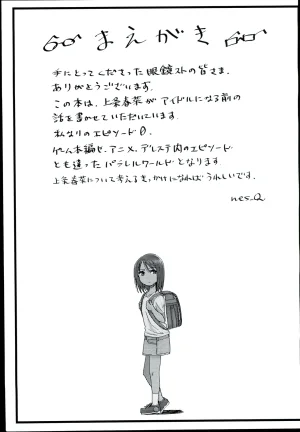 まえがき
手にとってくださった眼鏡ストの皆さま、
ありがとうございます。
この本は、上条春菜がアイドルになる前の
話を書かせていただいています。
私なりのエピソード0。
ゲーム本編や、アニメ、デレステ内のエピソード
とも違ったパラレルワールドとなります
上条春菜について考えるきっかけになればうれしいです。
nes_Q